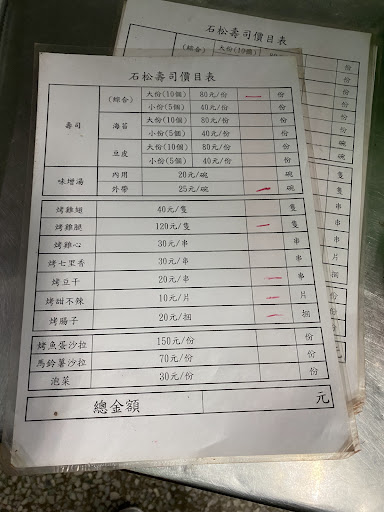 石松壽司價目表
壽司 (綜合) 大份(10個) 80元/份 一 份
小份(5個) 40元/份 份
海苔 大份(10個) 80元/份 份
小份(5個) 40元/份 份
豆皮 大份(10個) 80元/份 份
小份(5個) 40元/份 份
味增湯 內用 20元/碗 碗
外帶 25元/碗 一 碗
烤雞翅 40元/隻 隻
烤雞腿 120元/隻 一 隻
烤雞心 30元/串 串
烤七里香 30元/串 串
烤豆干 20元/串 一 串
烤甜不辣 10元/片 一 片
烤腸子 20元/捆 一 捆
烤魚蛋沙拉 150元/份 份
馬鈴薯沙拉 70元/份 份
泡菜 30元/份 份
總金額 元
石松壽司價目表
(綜合) 大份(10個) 80元/份 份
份
份
份
份
份
碗
碗
隻
隻
串
串
串
片
捆
份
份
份
元